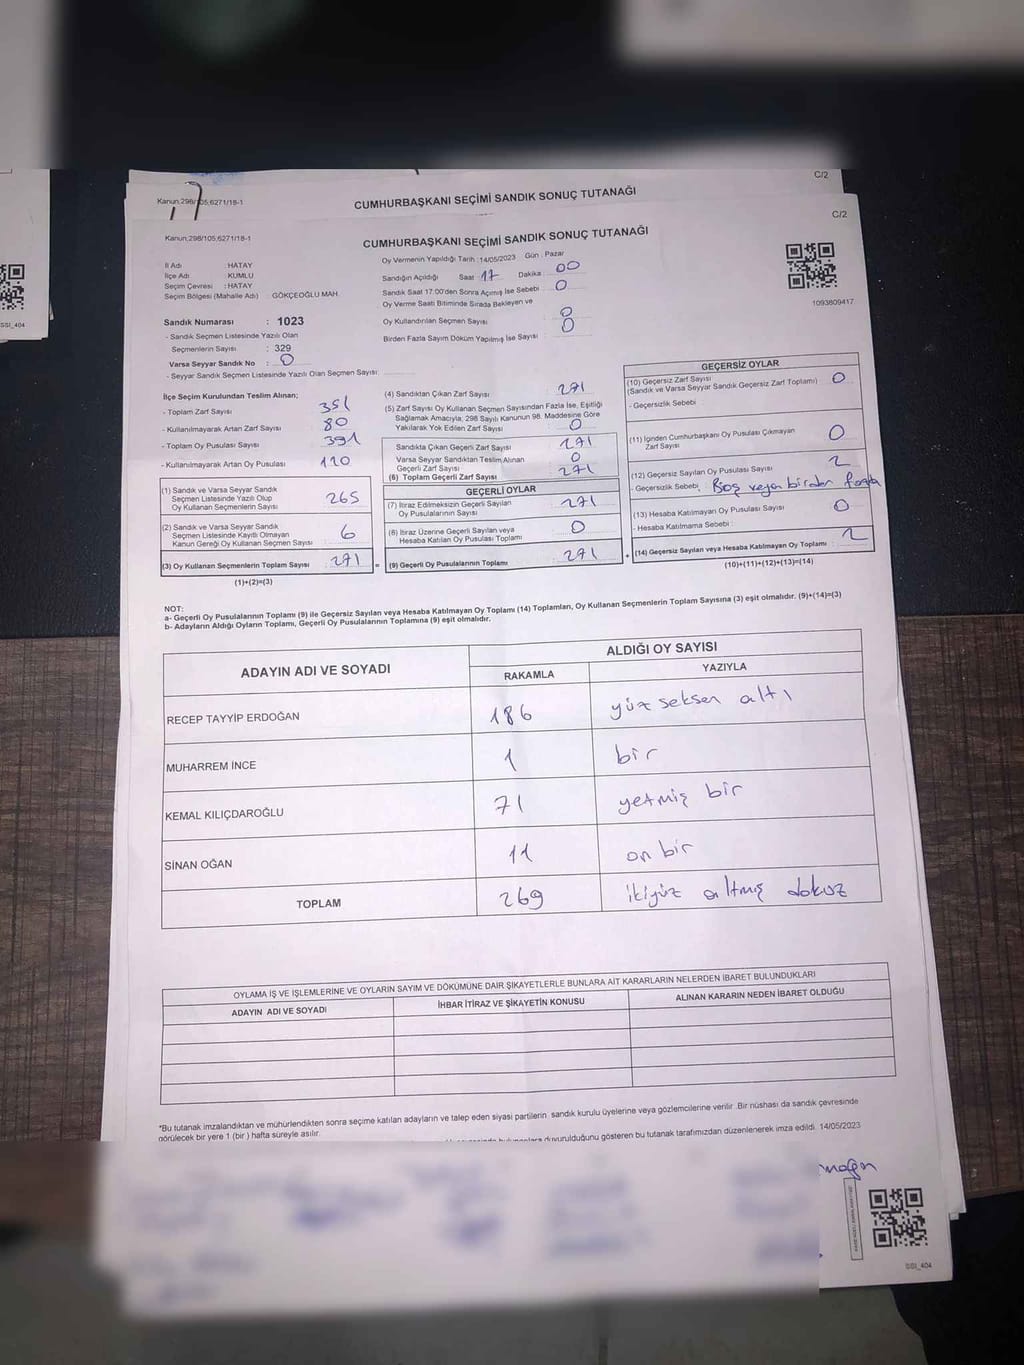 C/2
Kanun;298/105;6271/18-1
CUMHURBAŞKANI SEÇİMİ SANDIK SONUÇ TUTANAĞI
C/2
Kanun;298/105;6271/18-1
CUMHURBAŞKANI SEÇİMİ SANDIK SONUÇ TUTANAĞI
İl Adı : HATAY
İlçe Adı : KUMLU
Seçim Çevresi : HATAY
Seçim Bölgesi (Mahalle Adı) GÖKÇEOĞLU MAH.
Oy Vermenin Yapıldığı Tarih : 14/05/2023 Gün : Pazar
Sandığın Açıldığı Saat 17 Dakika : 00
Sandık Saat 17:00'den Sonra Açılmış İse Sebebi : 0
Oy Verme Saati Bitiminde Sırada Bekleyen ve
Oy Kullandırılan Seçmen Sayısı : 0
Birden Fazla Sayım Döküm Yapılmış İse Sayısı : 0
1093809417
Sandık Numarası : 1023
- Sandık Seçmen Listesinde Yazılı Olan
Seçmenlerin Sayısı : 329
Varsa Seyyar Sandık No : 0
- Seyyar Sandık Seçmen Listesinde Yazılı Olan Seçmen Sayısı :
İlçe Seçim Kurulundan Teslim Alınan;
- Toplam Zarf Sayısı 351
- Kullanılmayarak Artan Zarf Sayısı : 80
- Toplam Oy Pusulası Sayısı : 391
- Kullanılmayarak Artan Oy Pusulası : 120
(1) Sandık ve Varsa Seyyar Sandık
Seçmen Listesinde Yazılı Olup
Oy Kullanan Seçmenlerin Sayısı : 265
(2) Sandık ve Varsa Seyyar Sandık
Seçmen Listesinde Kayıtlı Olmayan
Kanun Gereği Oy Kullanan Seçmen Sayısı : 6
(3) Oy Kullanan Seçmenlerin Toplam Sayısı : 271
(1)+(2)=(3)
(4) Sandıktan Çıkan Zarf Sayısı : 271
(5) Zarf Sayısı Oy Kullanan Seçmen Sayısından Fazla İse, Eşitliği
Sağlamak Amacıyla; 298 Sayılı Kanunun 98. Maddesine Göre
Yakılarak Yok Edilen Zarf Sayısı : 0
Sandıkta Çıkan Geçerli Zarf Sayısı : 271
Varsa Seyyar Sandıktan Teslim Alınan
Geçerli Zarf Sayısı : 0
(6) Toplam Geçerli Zarf Sayısı : 271
GEÇERLİ OYLAR
(7) İtiraz Edilmeksizin Geçerli Sayılan
Oy Pusulalarının Sayısı : 271
(8) İtiraz Üzerine Geçerli Sayılan veya
Hesaba Katılan Oy Pusulası Toplamı : 0
= (9) Geçerli Oy Pusulalarının Toplamı : 271 +
GEÇERSİZ OYLAR
(10) Geçersiz Zarf Sayısı
(Sandık ve Varsa Seyyar Sandık Geçersiz Zarf Toplamı) : 0
- Geçersizlik Sebebi
(11) İçinden Cumhurbaşkanı Oy Pusulası Çıkmayan
Zarf Sayısı : 0
(12) Geçersiz Sayılan Oy Pusulası Sayısı : 2
- Geçersizlik Sebebi : Boş veya birden fazla
(13) Hesaba Katılmayan Oy Pusulası Sayısı : 0
- Hesaba Katılmama Sebebi :
(14) Geçersiz Sayılan veya Hesaba Katılmayan Oy Toplamı : 2
(10)+(11)+(12)+(13)=(14)
NOT:
a- Geçerli Oy Pusulalarının Toplamı (9) ile Geçersiz Sayılan veya Hesaba Katılmayan Oy Toplamı (14) Toplamları, Oy Kullanan Seçmenlerin Toplam Sayısına (3) eşit olmalıdır. (9)+(14)=(3)
b- Adayların Aldığı Oyların Toplamı, Geçerli Oy Pusulalarının Toplamına (9) eşit olmalıdır.
ADAYIN ADI VE SOYADI ALDIĞI OY SAYISI
RAKAMLA YAZIYLA
RECEP TAYYİP ERDOĞAN 186 yüz seksen altı
MUHARREM İNCE 1 bir
KEMAL KILIÇDAROĞLU 71 yetmiş bir
SİNAN OĞAN 11 on bir
TOPLAM 269 ikiyüz altmış dokuz
OYLAMA İŞ VE İŞLEMLERİNE VE OYLARIN SAYIM VE DÖKÜMÜNE DAİR ŞİKAYETLERLE BUNLARA AİT KARARLARIN NELERDEN İBARET BULUNDUKLARI
ADAYIN ADI VE SOYADI İHBAR İTİRAZ VE ŞİKAYETİN KONUSU ALINAN KARARIN NEDEN İBARET OLDUĞU
*Bu tutanak imzalandıktan ve mühürlendikten sonra seçime katılan adayların ve talep eden siyasi partilerin sandık kurulu üyelerine veya gözlemcilerine verilir. Bir nüshası da sandık çevresinde
görülecek bir yere 1 (bir) hafta süreyle asılır.
duyurulduğunu gösteren bu tutanak tarafımızdan düzenlenerek imza edildi. 14/05/2023
SSI_404
SSI_404